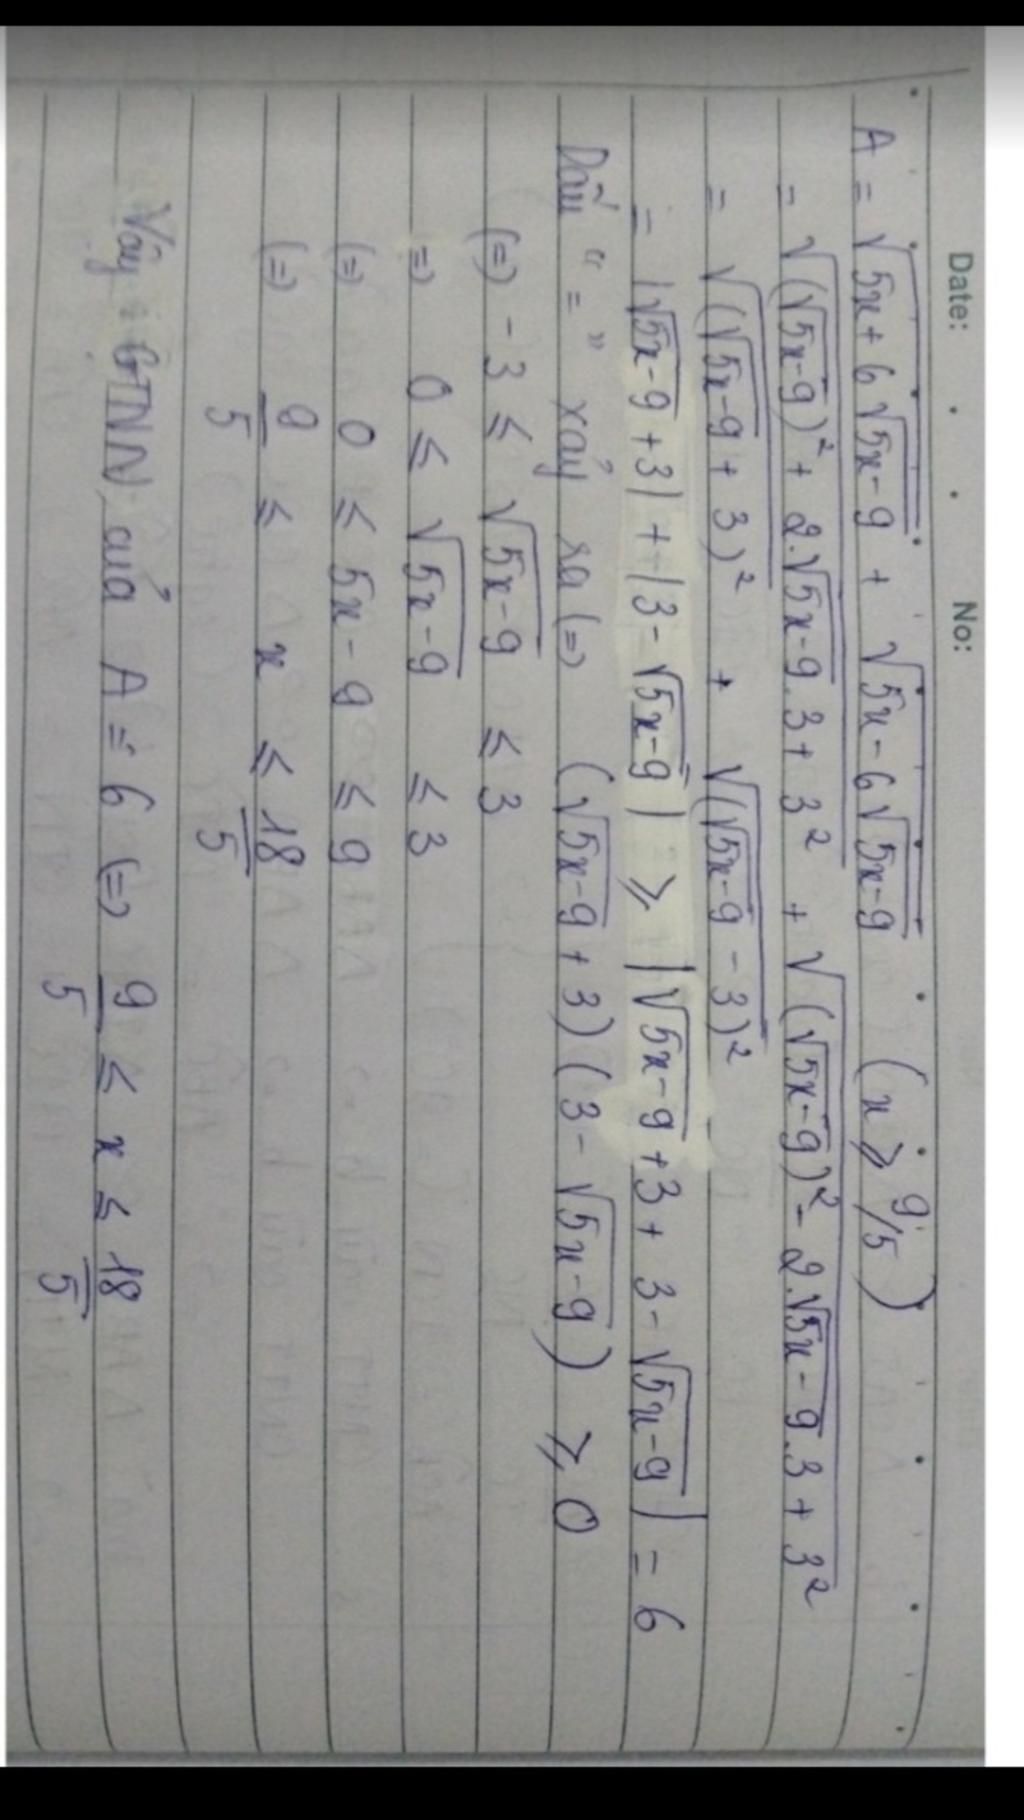 Date: No:
A = √(5x + 6√(5x-9)) + √(5x - 6√(5x-9)) (x ⩾ 9/5)
= √((√(5x-9))² + 2.√(5x-9).3 + 3²) + √((√(5x-9))² - 2.√(5x-9).3 + 3²)
= √((√(5x-9) + 3)²) + √((√(5x-9) - 3)²)
= |√(5x-9) + 3| + |3 - √(5x-9)| ⩾ |√(5x-9) + 3 + 3 - √(5x-9)| = 6
Dấu "=" xảy ra (=) (√(5x-9) + 3)(3 - √(5x-9)) ⩾ 0
(=) -3 ≤ √(5x-9) ≤ 3
=) 0 ≤ √(5x-9) ≤ 3
(=) 0 ≤ 5x - 9 ≤ 9
(=) 9/5 ≤ x ≤ 18/5
Vậy GTNN của A = 6 (=) 9/5 ≤ x ≤ 18/5